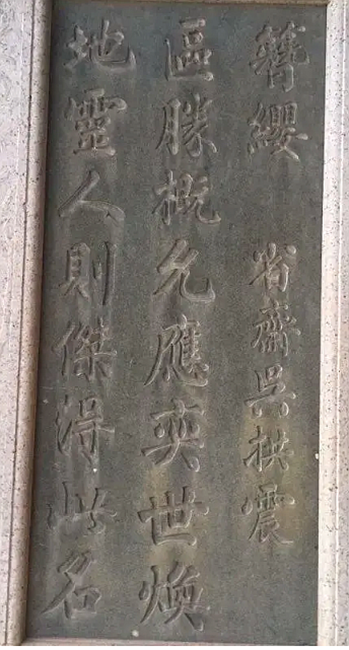 地靈人則傑得此名
區勝概允應奕世煥
簪纓 省齋吳拱震